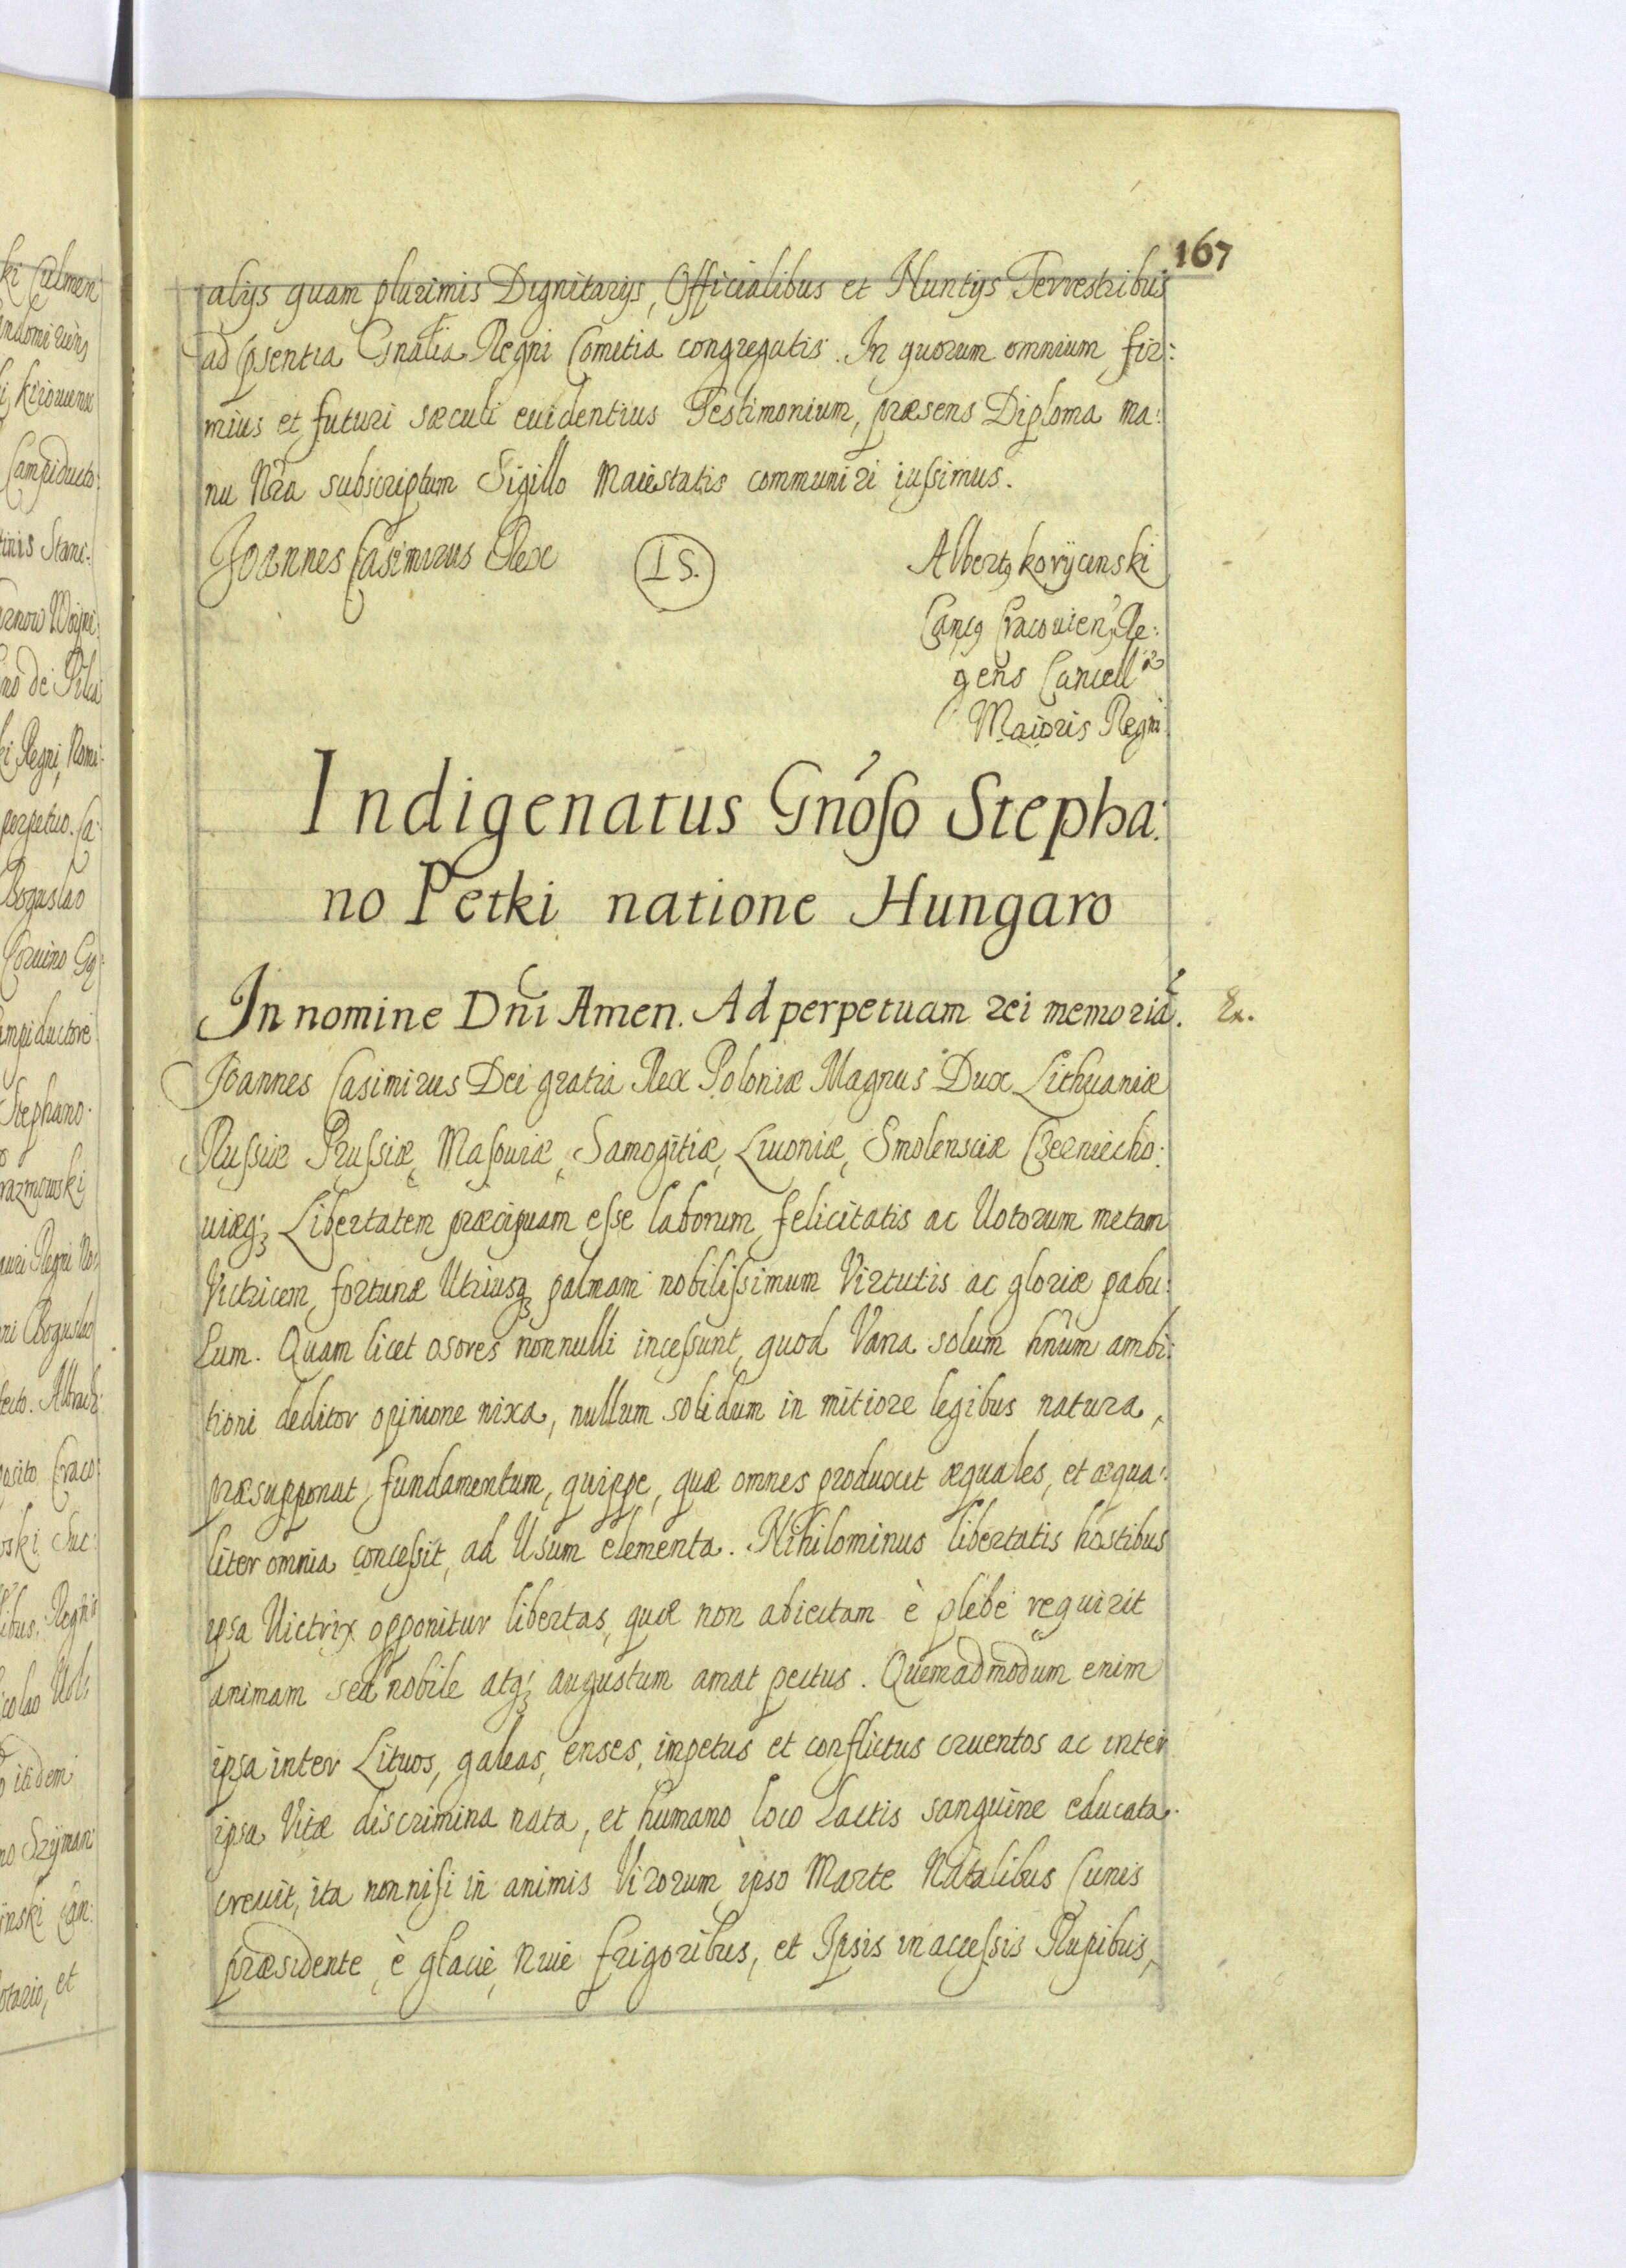 167
alijs quam plurimis Dignitarijs, Officialibus et Nuntijs Terrestribus
ad pntia Gnalia Regni Comitia congregatis. In quorum omnium fir:
mius et futuri sæculi euidentius Testimonium, præsens Diploma ma:
nu Nra subscriptum Sigillo Maiestatis communiri iussimus.
Joannes Casimirus Rex
LS.
Albertq Korycinski
Cancq Cracouien, Re:
gens Cancell
Maioris Regni
Indigenatus Gnoso Stepha:
no Petki natione Hungaro
In nomine Dni Amen. Ad perpetuam rei memoriã. Ex.
Joannes Casimirus Dei gratia Rex Poloniæ Magnus Dux Lithuaniæ
Russiæ Prussiæ, Masouiæ, Samogitiæ, Liuoniæ, Smolensciæ Czerniecho:
uiæq; Libertatem præcipuam esse laborum, felicitatis ac Uotorum metam
Victricem, fortunæ Utriusq; palmam nobilissimum Virtutis ac gloriæ pabu:
lum. Quam licet osores nonnulli incessunt, quod Vana solum hnum ambi:
tioni deditor opinione nixa, nullum solidum in mitiore legibus natura,
præsupponat, fundamentum, quippe, quæ omnes produxit æquales, et æqua:
liter omnia concessit, ad Usum elementa. Nihilominus libertatis hostibus
ipsa Uictrix opponitur libertas, quæ non abiectam è plebe requirit
animam sed nobile atq; augustum amat pectus. Quemadmodum enim
ipsa inter Lituos, galeas, enses, impetus et conflictus cruentos ac inter
ipsa Vitæ discrimina nata, et humano loco Lactis sanguine educata
creuit, ita non nisi in animis Virorum ipso Marte Natalibus Cunis
præsidente, è glacie, Niue frigoribus, et Ipsis inaccessis Rupibus,